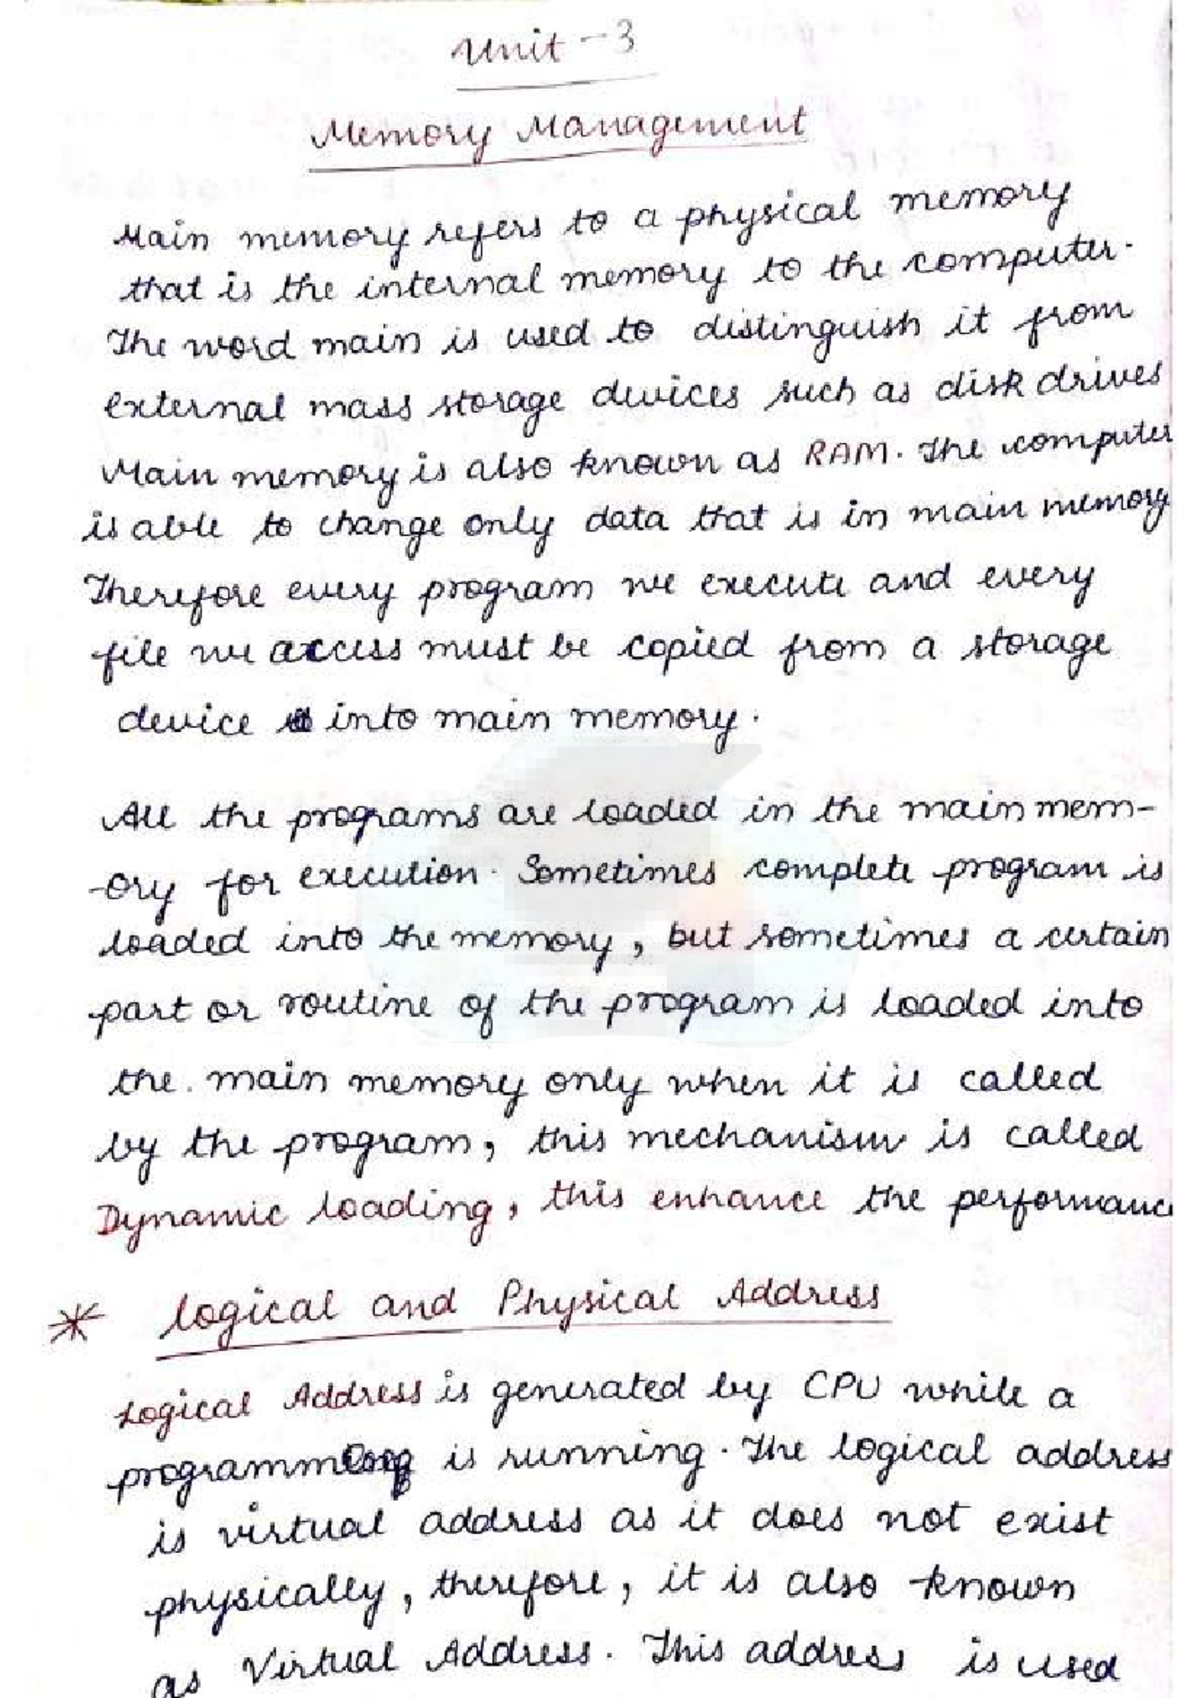 Unit - 3
Memory Management
Main memory refers to a physical memory
that is the internal memory to the computer.
The word main is used to distinguish it from
external mass storage devices such as disk drives
Main memory is also known as RAM. The computer
is able to change only data that is in main memory
Therefore every program we execute and every
file we access must be copied from a storage
device into main memory.
All the programs are loaded in the main mem-
-ory for execution. Sometimes complete program is
loaded into the memory, but sometimes a certain
part or routine of the program is loaded into
the main memory only when it is called
by the program, this mechanism is called
Dynamic loading, this enhance the performance
* Logical and Physical Address
Logical Address is generated by CPU while a
programm is running. The logical address
is virtual address as it does not exist
physically, therefore, it is also known
as Virtual Address. This address is used